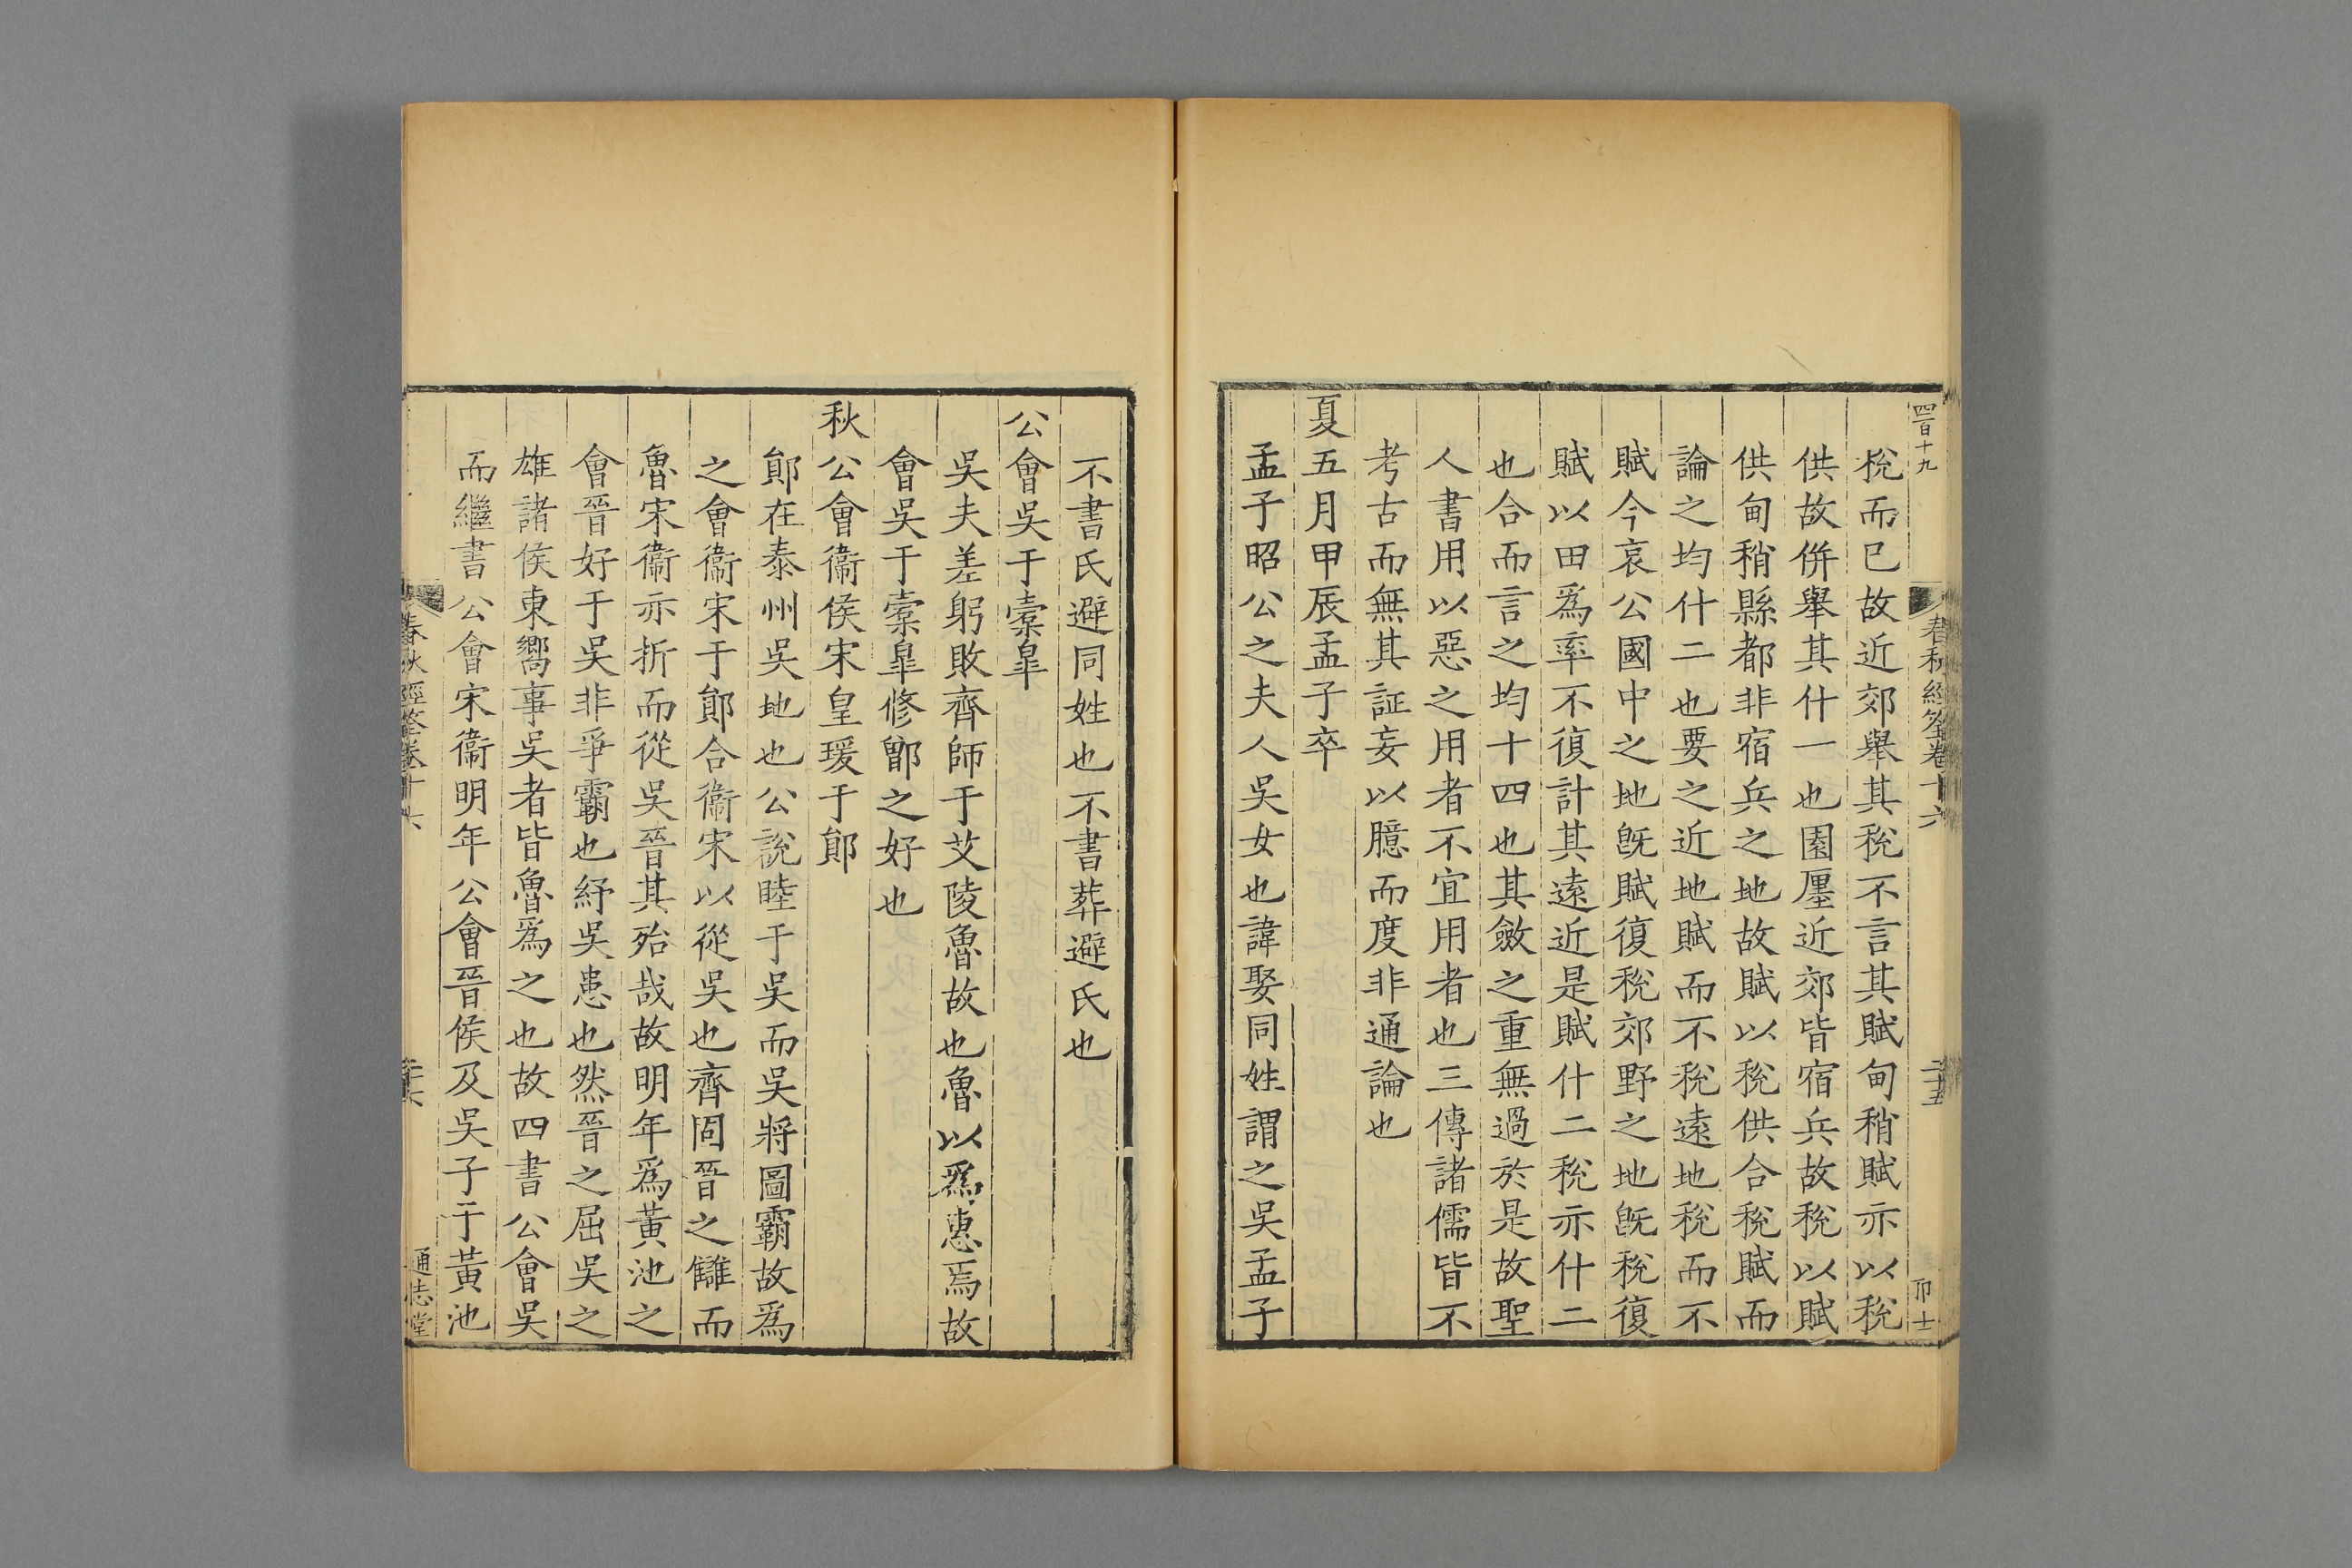 四百十九
春秋經筌卷十六
二十五
卬士
稅而已故近郊舉其稅不言其賦甸稍賦亦以稅
供故併舉其什一也園廛近郊皆宿兵故稅以賦
供甸稍縣都非宿兵之地故賦以稅供合稅賦而
論之均什二也要之近地賦而不稅遠地稅而不
賦今哀公國中之地旣賦復稅郊野之地旣稅復
賦以田爲率不復計其遠近是賦什二稅亦什二
也合而言之均十四也其斂之重無過於是故聖
人書用以惡之用者不宜用者也三傳諸儒皆不
考古而無其証妄以臆而度非通論也
夏五月甲辰孟子卒
孟子昭公之夫人吳女也諱娶同姓謂之吳孟子
不書氏避同姓也不書葬避氏也
公會吳于橐臯
吳夫差躬敗齊師于艾陵魯故也魯以爲惠焉故
會吳于橐臯修鄫之好也
秋公會衞侯宋皇瑗于鄖
鄖在泰州吳地也公說睦于吳而吳將圖霸故爲
之會衞宋于鄖合衞宋以從吳也齊固晉之讎而
魯宋衞亦折而從吳晉其殆哉故明年爲黃池之
會晉好于吳非爭霸也紓吳患也然晉之屈吳之
雄諸侯東嚮事吳者皆魯爲之也故四書公會吳
而繼書公會宋衞明年公會晉侯及吳子于黃池
春秋經筌卷十六
二十六
通志堂